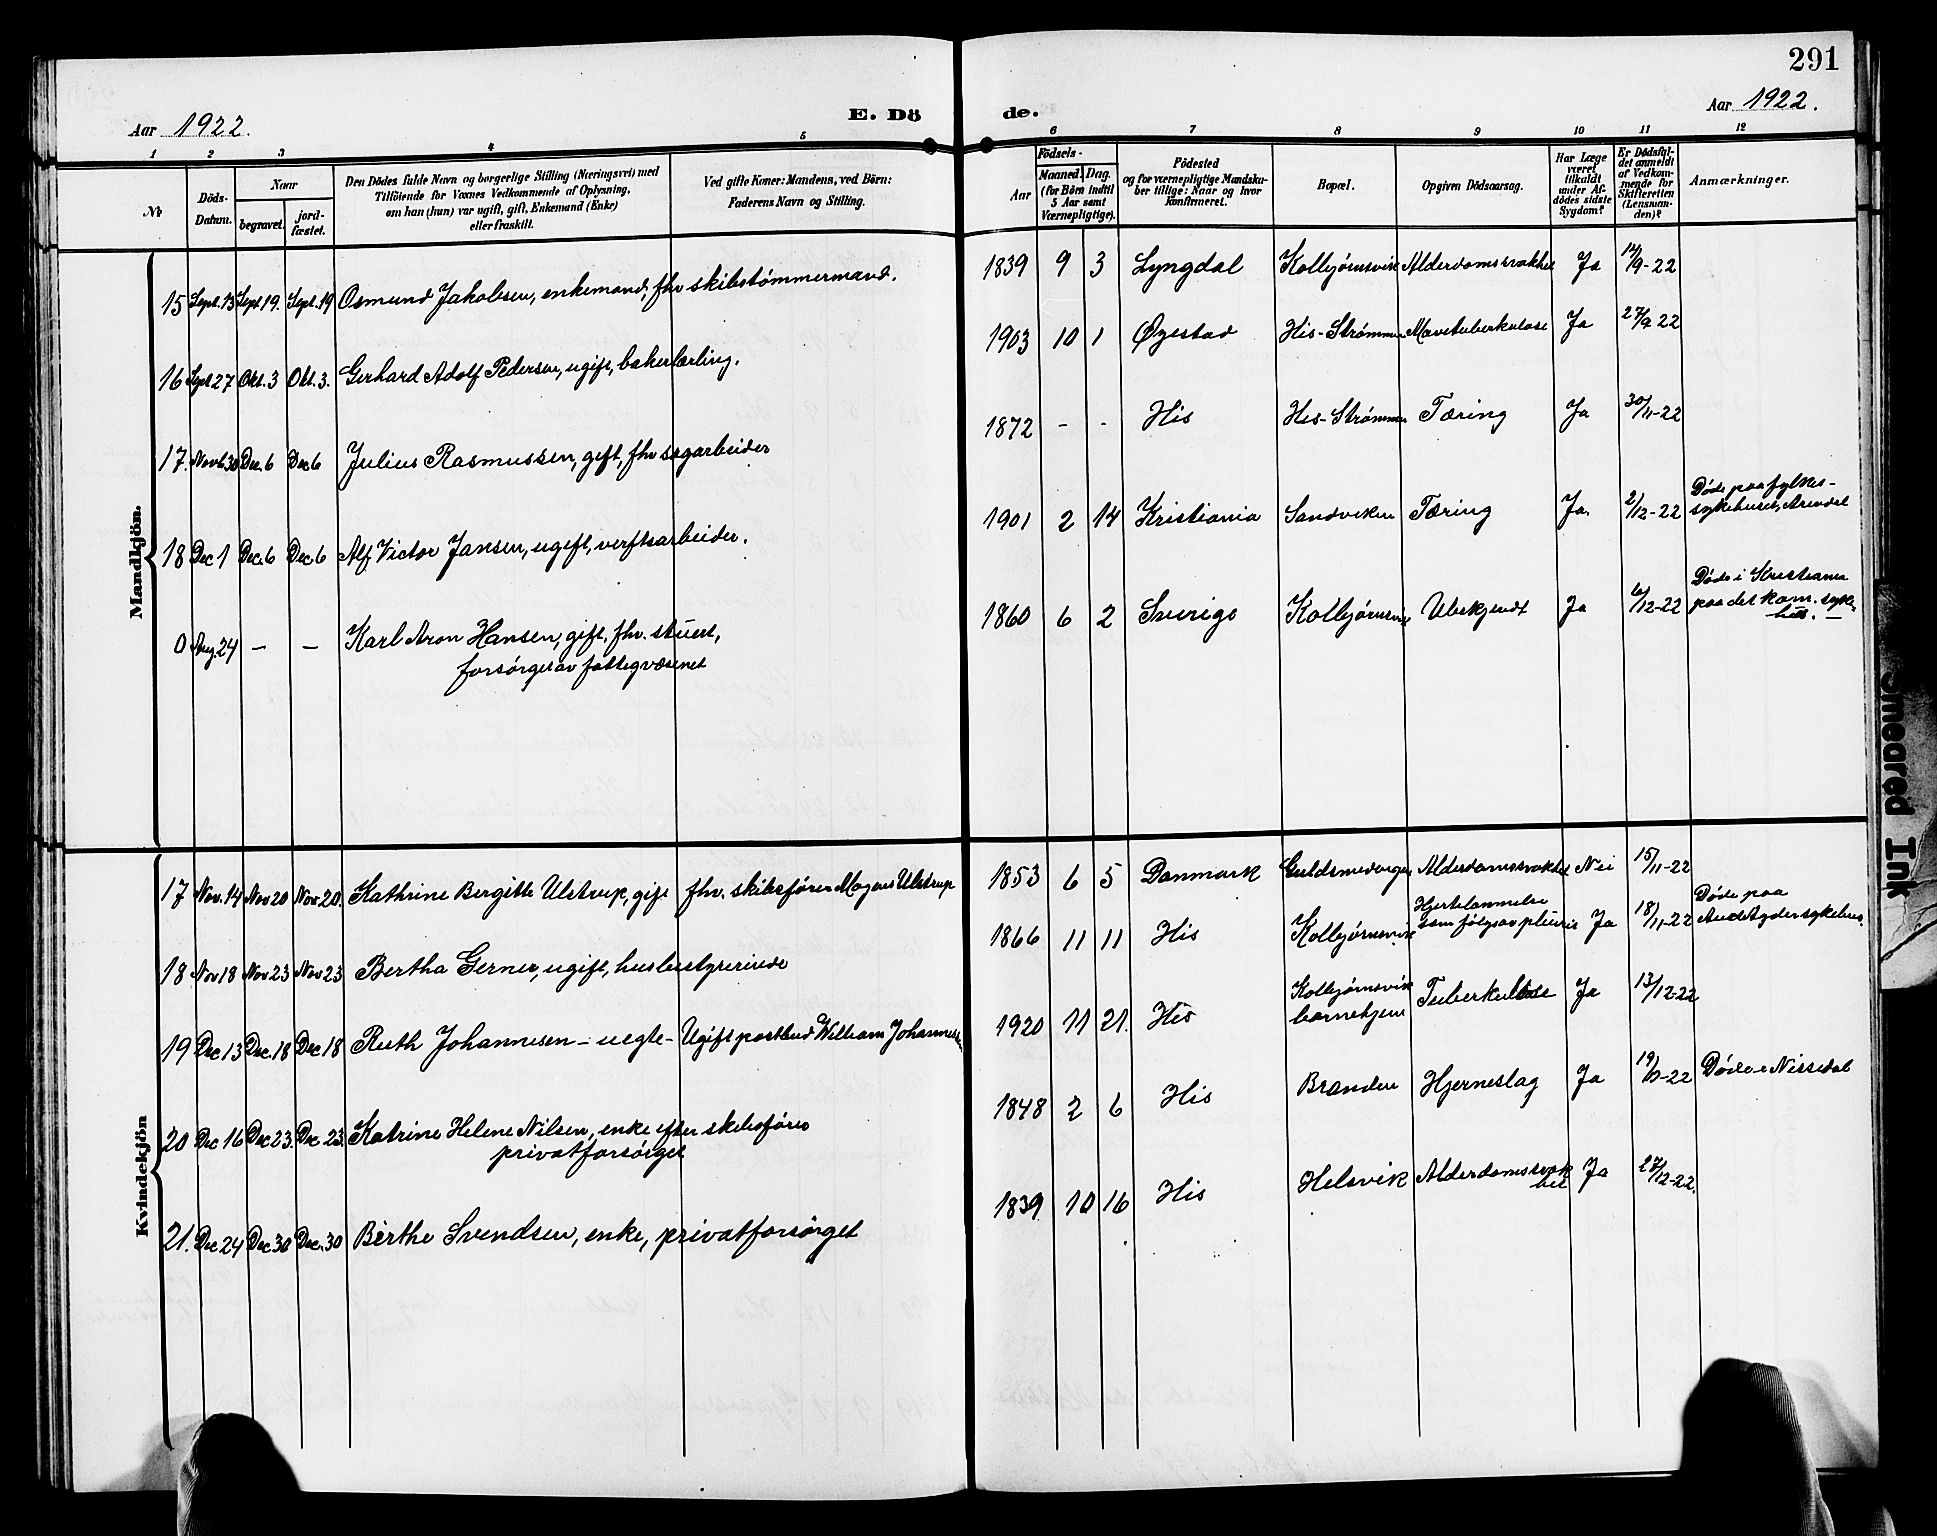 291
Aar 1922.
E. Dö
de.
Aar 1922.
1 2 3 4 5
6 7 8 9 10 11 12
No
Döds-
Datum.
Naar
begravet.
jord-
fæstet.
Den Dödes fulde Navn og borgerlige Stilling (Næringsvei) med
Tilföiende for Voxnes Vedkommende af Oplysning,
om han (hun) var ugift, gift, Enkemand (Enke)
eller fraskilt.
Ved gifte Koner: Mandens, ved Börn:
Faderens Navn og Stilling.
Födsels-
Aar
Maaned. Dag.
(for Börn indtil
5 Aar samt
Værnepligtige).
Födested
og for værnepligtige Mandskaber
tillige: Naar og hvor
konfirmeret.
Bopæl.
Opgiven Dödsaarsag.
Har Læge
været
tilkaldt
under Af-
dödes sidste
Sygdom?
Er Dödsfal-
det anmeldt
af Vedkom-
mende for
Skifteretten
(Lensman-
den)?
Anmærkninger.
Mandkjön.
15 Sept. 13 Sept 19. Sept. 19 Osmund Jakobsen, enkemand, fhv skibstømmermand.
1839 9 3 Lyngdal Kolbjørnsvik Alderdomssvakhet Ja 14/9-22
16 Sept 27 Okt. 3 Okt. 3. Gerhard Adolf Pedersen, ugift, bakerlærling.
1903 10 1 Øyestad His-Strømmen Mavetuberkulose Ja 27/9 22
17. Novb 30 Dec. 6 Dec 6 Julius Rasmussen, gift, fhv sagarbeider
1872 - - His His-Strømmen Tæring Ja 30/11-22
18 Dec 1 Dec. 6 Dec 6 Alf Victor Jansen, ugift, verftsarbeider.
1901 2 14 Kristiania Sandviken Tæring Ja. 2/12-22 Døde paa fylkes-
sykehuset, Arendal
0 Aug. 24 - - Karl Aron Hansen, gift, fhv. stuert,
forsørget av fattigvæsenet
1860 6 2 Sverige Kolbjørnsvik Ubekjendt Ja 6/12-22 Døde i Kristiania
paa det kom. syke-
hus. -
Kvindekjön
17 Nov. 14 Nov 20 Nov 20. Kathrine Bergitte Ulstrup, gift fhv. skibsfører Mogens Ulstrup
1853 6 5 Danmark Guldsmedengen Alderdomssvakhet Nei 15/11-22
18 Nov 18 Nov 23 Nov 23 Bertha Gerner, ugift, husbestyrerinde
1866 11 11 His Kolbjørnsvik Hjertelammelse
som følge av pleurit Ja 18/11-22 Døde paa
AustAgdersykehus.
19 Dec 13 Dec. 18 Dec 18 Ruth Johannesen - uegte - Ugift postbud William Johannesen
1920 11 21. His Kolbjørnsvik
barnehjem Tuberkulose Ja 13/12-22
20 Dec 16 Dec 23. Dec 23. Katrine Helene Nilsen, enke efter skibsfører
privatforsørget
1848 2 6 His Branden Hjerneslag Ja Døde i Nissedal
21. Dec 24 Dec 30 Dec. 30 Birthe Svendsen, enke, privatforsørget
1839 10 16 His Helsvik Alderdomssvak
het Ja 27/12-22.
Smeared Ink